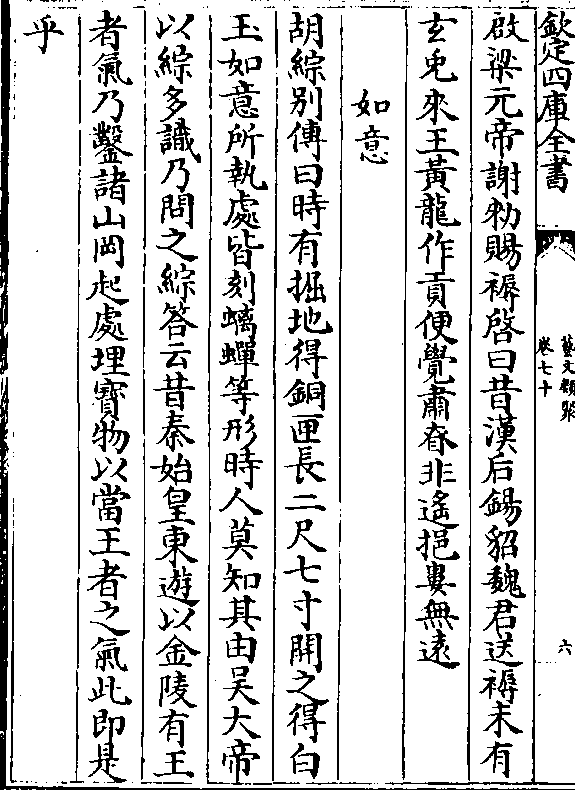 欽定四庫全書
藝文類聚
卷七十
六
啟梁元帝謝勅賜褥啓曰昔漢后錫貂魏君送褥未有
玄兎來王黃龍作貢便覺肅眘非遙挹婁無遠
如意
胡綜别傳曰時有掘地得銅匣長二尺七寸開之得白
玉如意所執處皆刻螭蟬等形時人莫知其由吴大帝
以綜多識乃問之綜答云昔秦始皇東遊以金陵有王
者氣乃鑿諸山岡起處埋寶物以當王者之氣此即是
乎